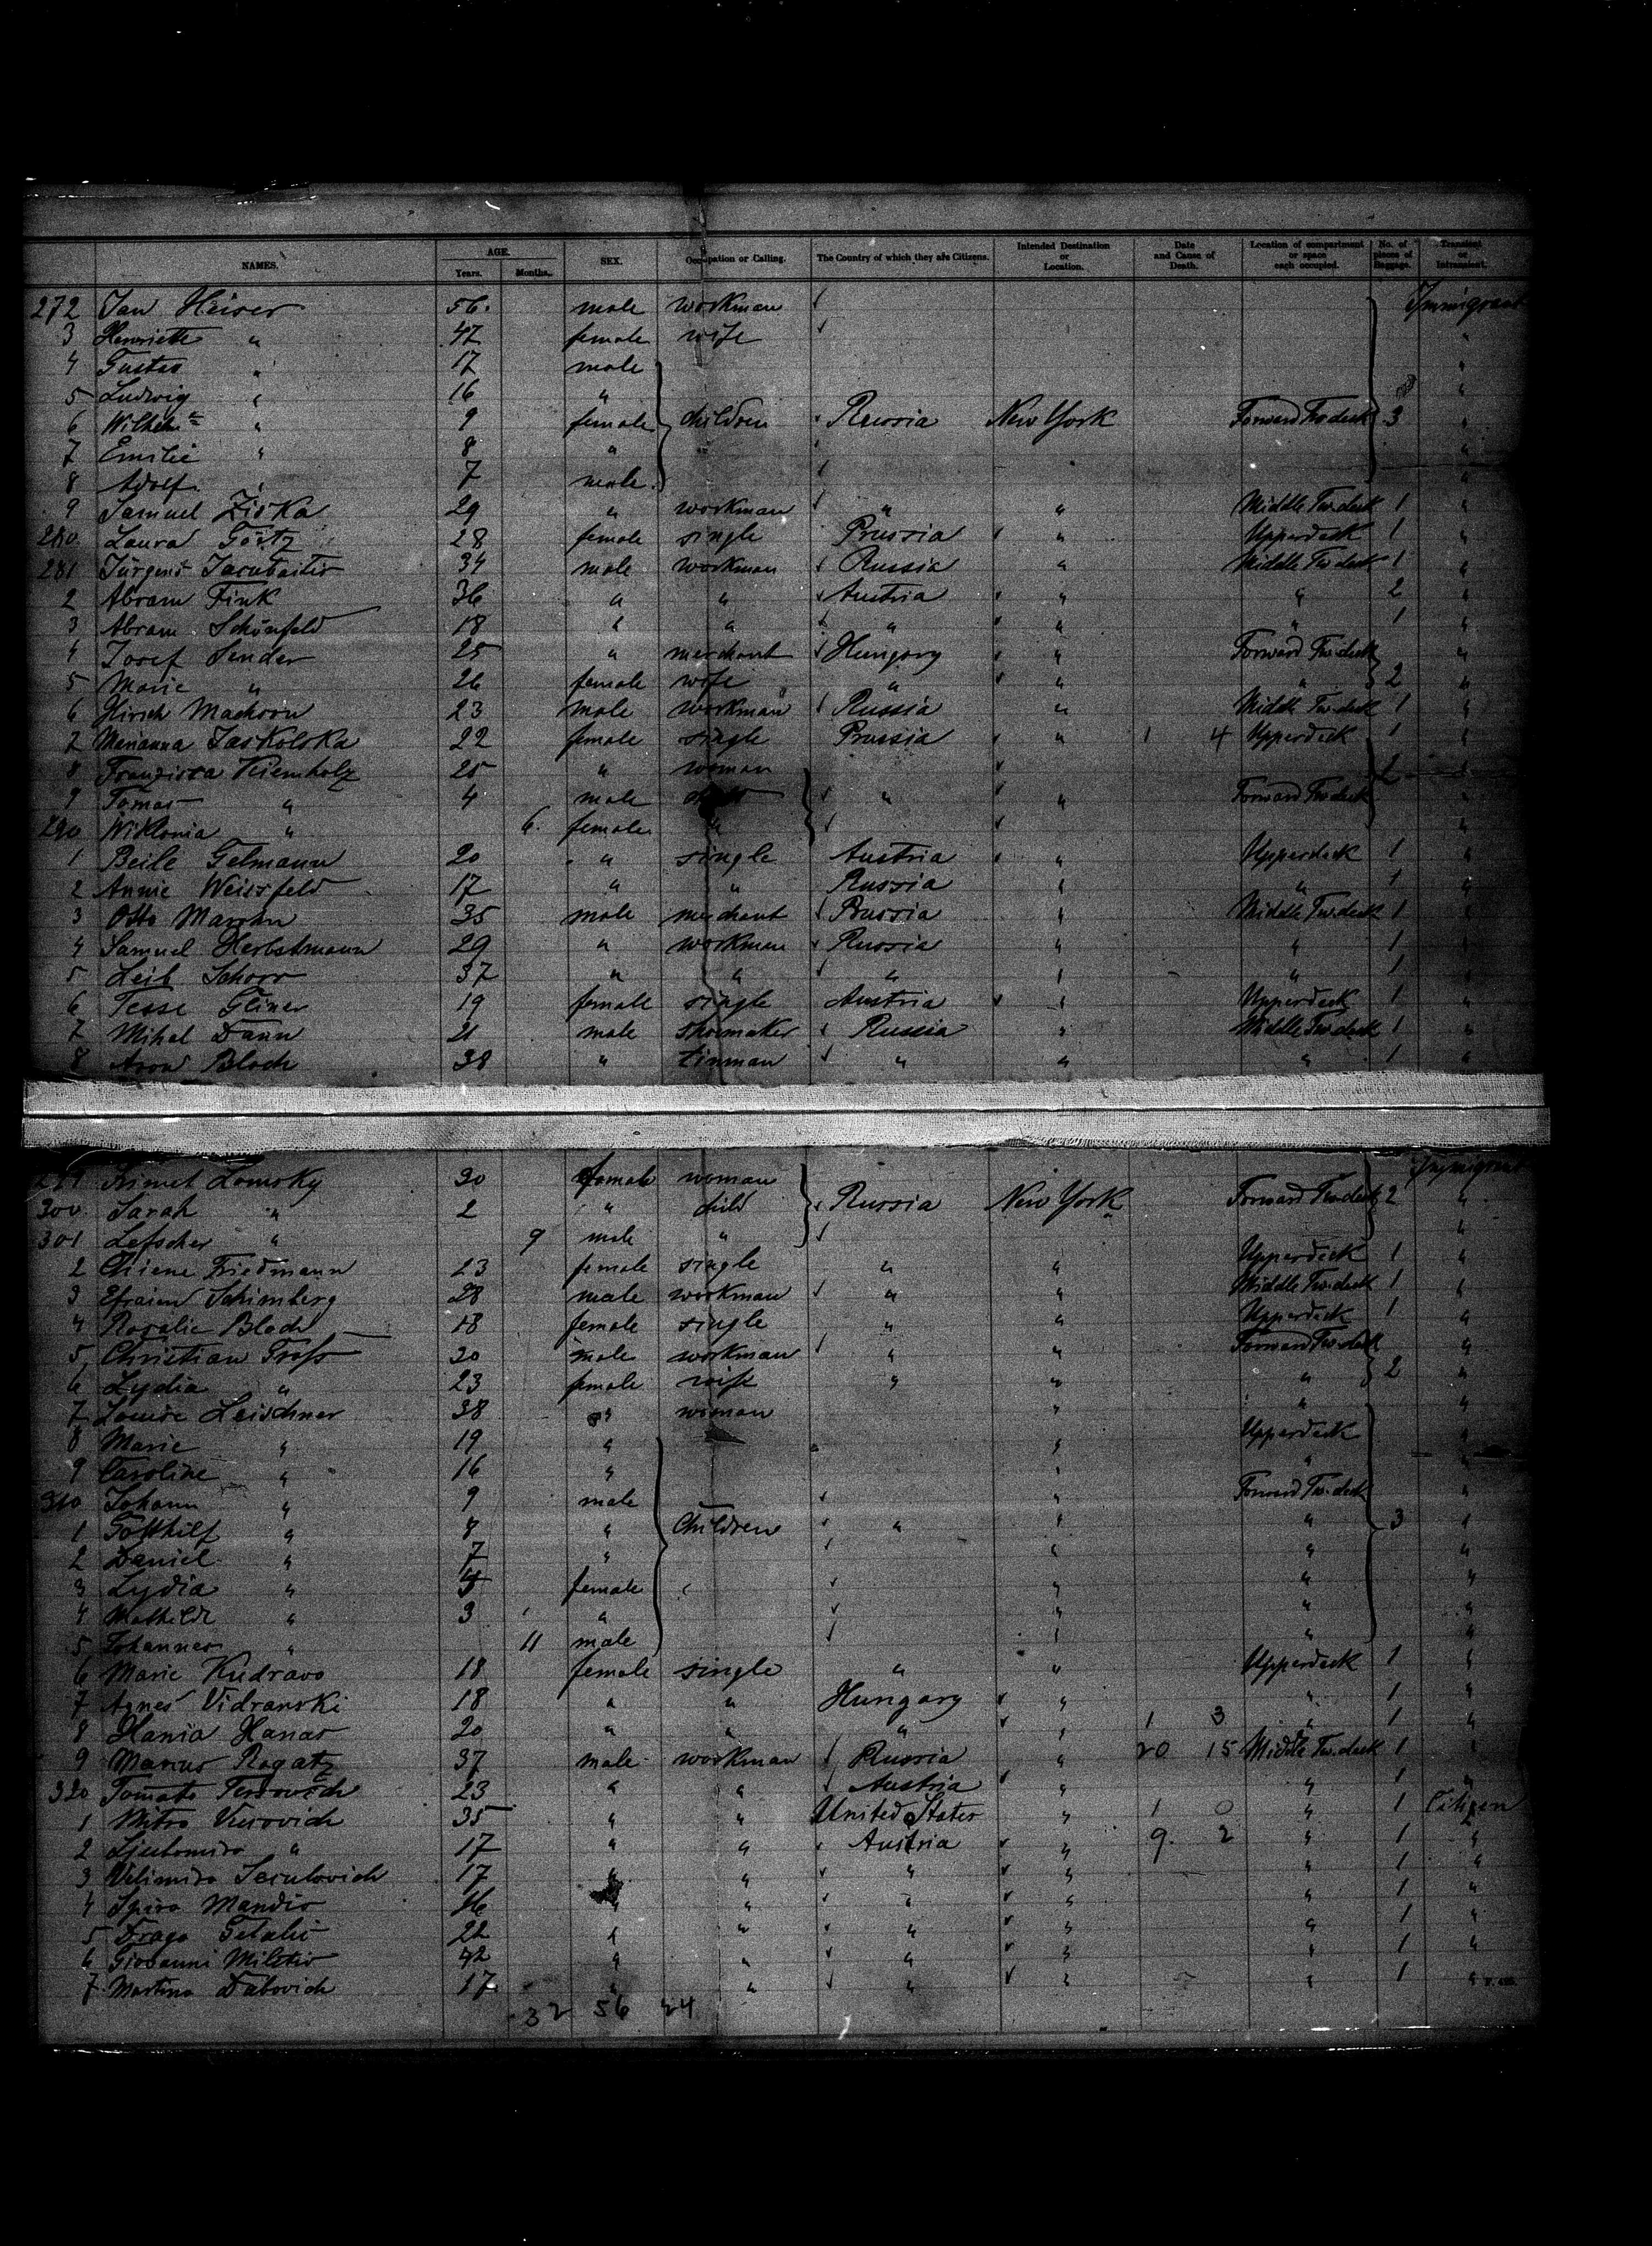 NAMES. AGE. Years. Months. SEX. Occupation or Calling. The Country of which they are Citizens. Intended Destination or Location. Date and Cause of Death. Location of compartment or space each occupied. No. of pieces of Baggage. Transient or Intransient.
272 Jan Heiser 56. male workman Immigrant
3 Henriette " 47 female wife "
4 Gustav " 17 male "
5 Ludwig " 16 " "
6 Wilhelm " 9 female children Russia New York Forward Tw. deck 3 "
7 Emilie " 8 " "
8 Adolf " 7 male "
9 Samuel Ziska 29 " workman " " Middle Tw. deck 1 "
280 Laura Götz 28 female single Prussia " Upperdeck 1 "
281 Jurgens Jacubaitis 34 male workman Russia " Middle Tw. deck 1 "
2 Abram Fink 36 " " Austria " " 2 "
3 Abram Schönfeld 18 " " " " " 1 "
4 Josef Sender 25 " merchant Hungary " Forward Tw. deck "
5 Marie " 26 female wife " " " 2 "
6 Hirsch Machorn 23 male workman Russia " Middle Tw. deck 1 "
7 Marianna Jaskolska 22 female single Prussia " 1 4 Upperdeck 1 "
8 Franziska Kiemholz 25 " woman 2 "
9 Tomas " 4 male " " Forward Tw. deck "
290 Wiktonia " 6. female " "
1 Beile Gelmann 20 " single Austria " Upperdeck 1 "
2 Annie Weissfeld 17 " " Russia " " 1 "
3 Otto 35 male merchant Prussia " Middle Tw. deck 1 "
4 Samuel Herbstmann 29 " workman Russia " " 1 "
5 Leib Schorr 37 " " " " " 1 "
6 Tesse Gliner 19 female single Austria " Upperdeck 1 "
7 Mihal Dann 21 male shoemaker Russia " Middle Tw. deck 1 "
8 Aron Bloch 38 " tinman " " " 1 "
Lomsky 30 female woman Immigrant
300 Sarah " 2 " child Russia New York Forward Tw. deck 2 "
301 Lefscher " 9 male " "
2 Chiene Friedmann 23 female single " " Upperdeck 1 "
3 Efraim Schimberg 28 male workman " " Middle Tw. deck 1 "
4 Rosalie Bloch 18 female single " " Upperdeck 1 "
5 Christian 30 male workman " " Forward Tw. deck "
6 Lydia " 23 female wife " " " 2 "
7 Louise Leischner 38 " woman " " "
8 Marie " 19 " " Upperdeck "
9 Caroline " 16 " " " "
310 Johann " 9 male " Forward Tw. deck "
1 Gotthilf " 8 " Children " " " 3 "
2 Daniel " 7 " " " "
3 Lydia " female " " "
4 Mathilde " 3 " " " "
5 Johannes " 11 male " " "
6 Marie Kudravo 18 female single " " Upperdeck 1 "
7 Agnes Vidranski 18 " " Hungary " " 1 "
8 Hania Hanas 20 " " " " 1 3 " 1 "
9 Marcus Rogatz 37 male workman Russia " 20 15 Middle Tw. deck 1 "
320 Tomato 23 " " Austria " " 1 "
1 Mitro Vurovich 35 " " United States " 1 0 " 1 Citizen
2 Ljubomiro " 17 " " Austria " 9. 2 " 1 "
3 Velimiro 17 " " " " " 1 "
4 Spiro Mandic 16 " " " " " 1 "
5 Drago 22 " " " " " 1 "
6 Giovanni 42 " " " " " 1 "
7 Martino Dabovich 17 " " " " " 1 "
32 56 24